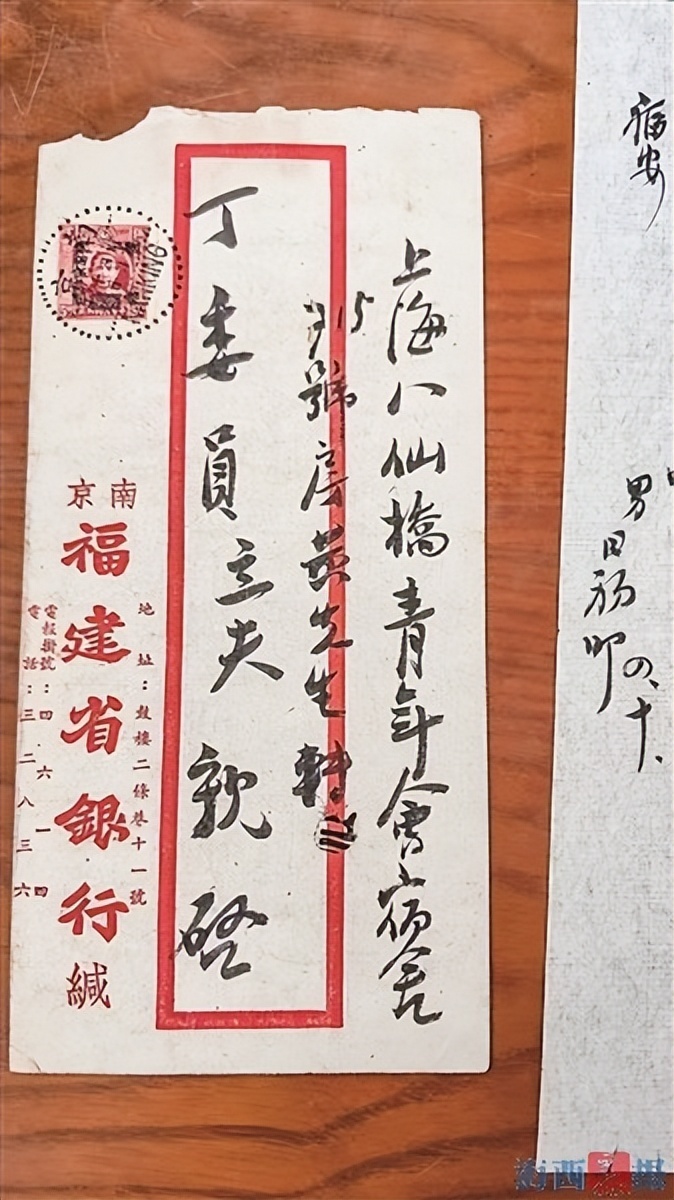 福安
上海八仙橋青年會宿舍
15號房黃先生轉
丁委員立夫親啓
地址：鼓樓二條巷十一號
南京
福建省銀行緘
電報掛號：四六一四
電話：三二八三六